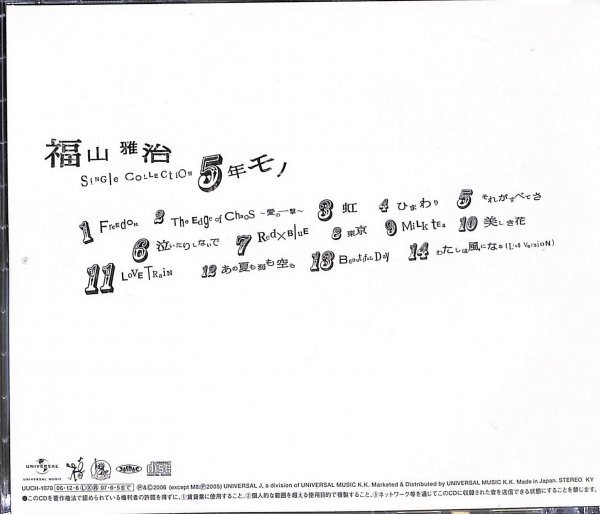 福山雅治
SINGLE COLLECTION 5年モノ
1 Freedom 2 The Edge of Chaos ～愛の一撃～ 3 虹 4 ひまわり 5 それがすべてさ
6 泣いたりしないで 7 Red×Blue 8 東京 9 Milk tea 10 美しき花
11 LOVE TRAIN 12 あの夏も海も空も 13 Beautiful Day 14 わたしは風になる (Live Version)
UNIVERSAL
UNIVERSAL MUSIC
COMPACT disc DIGITAL AUDIO
UUCH-1070 06・12・6 07・6・5まで Ⓟ&©2006 (except M8:Ⓟ2005) UNIVERSAL J, a division of UNIVERSAL MUSIC K.K. Marketed & Distributed by UNIVERSAL MUSIC K.K. Made in Japan. STEREO KY
●このCDを著作権法で認められている権利者の許諾を得ずに、①賃貸業に使用すること、②個人的な範囲を超える使用目的で複製すること、③ネットワーク等を通じてこのCDに収録された音を送信できる状態にすることを禁じます。